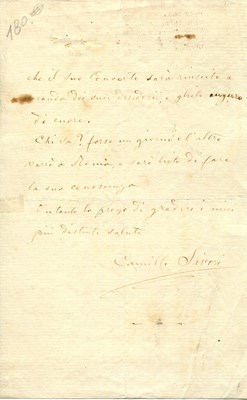 180.
che il suo Concerto sarà riuscito a
seconda dei suoi desideri, e glielo auguro
di cuore.
Chi sa? forse un giorno o l'altro
verrò a Roma, e sarò lieto di fare
la sua conoscenza
Intanto la prego di gradire i miei
più distinti saluti
Camillo Sivori